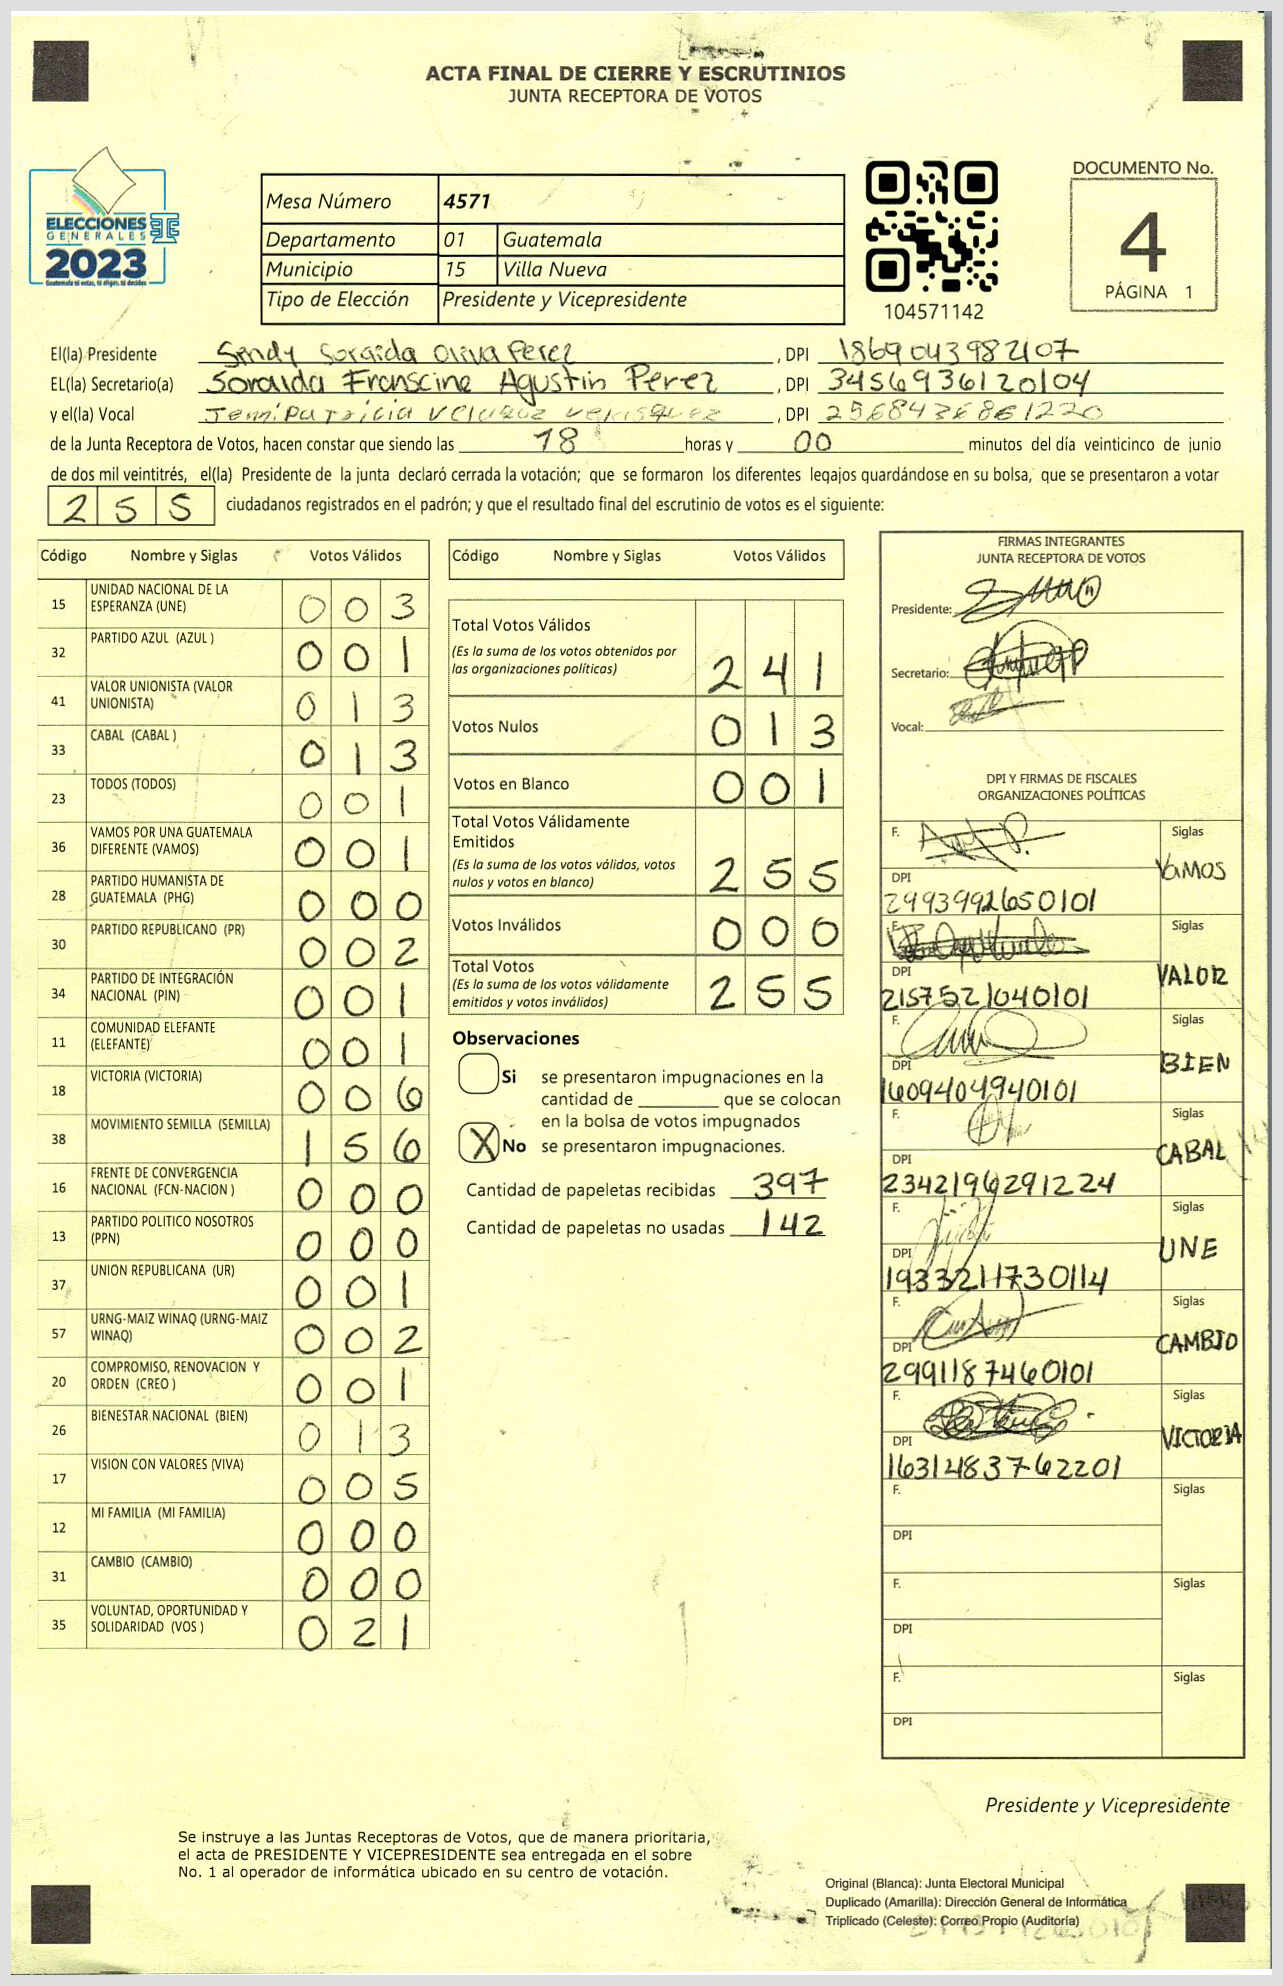 ACTA FINAL DE CIERRE Y ESCRUTINIOS
JUNTA RECEPTORA DE VOTOS
ELECCIONES
GENERALES
2023
Guatemala tú votas, tú eliges, tú decides
TSE
Mesa Número 4571
Departamento 01 Guatemala
Municipio 15 Villa Nueva
Tipo de Elección Presidente y Vicepresidente
104571142
DOCUMENTO No.
4
PÁGINA 1
El(la) Presidente Sindy Soraida Oliva Perez, DPI 1869043982107
EL(la) Secretario(a) Soraida Franscine Agustin Perez, DPI 3456936120104
y el(la) Vocal Jenni Patricia, DPI 2568436861220
de la Junta Receptora de Votos, hacen constar que siendo las 18 horas y 00 minutos del día veinticinco de junio
de dos mil veintitrés, el(la) Presidente de la junta declaró cerrada la votación; que se formaron los diferentes legajos quardándose en su bolsa, que se presentaron a votar
255 ciudadanos registrados en el padrón; y que el resultado final del escrutinio de votos es el siguiente:
Código Nombre y Siglas Votos Válidos
15 UNIDAD NACIONAL DE LA ESPERANZA (UNE) 003
32 PARTIDO AZUL (AZUL ) 001
41 VALOR UNIONISTA (VALOR UNIONISTA) 013
33 CABAL (CABAL ) 013
23 TODOS (TODOS) 001
36 VAMOS POR UNA GUATEMALA DIFERENTE (VAMOS) 001
28 PARTIDO HUMANISTA DE GUATEMALA (PHG) 000
30 PARTIDO REPUBLICANO (PR) 002
34 PARTIDO DE INTEGRACIÓN NACIONAL (PIN) 001
11 COMUNIDAD ELEFANTE (ELEFANTE) 001
18 VICTORIA (VICTORIA) 006
38 MOVIMIENTO SEMILLA (SEMILLA) 156
16 FRENTE DE CONVERGENCIA NACIONAL (FCN-NACION ) 000
13 PARTIDO POLITICO NOSOTROS (PPN) 000
37 UNION REPUBLICANA (UR) 001
57 URNG-MAIZ WINAQ (URNG-MAIZ WINAQ) 002
20 COMPROMISO, RENOVACION Y ORDEN (CREO ) 001
26 BIENESTAR NACIONAL (BIEN) 013
17 VISION CON VALORES (VIVA) 005
12 MI FAMILIA (MI FAMILIA) 000
31 CAMBIO (CAMBIO) 000
35 VOLUNTAD, OPORTUNIDAD Y SOLIDARIDAD (VOS ) 021
Código Nombre y Siglas Votos Válidos
Total Votos Válidos 241
(Es la suma de los votos obtenidos por
las organizaciones políticas)
Votos Nulos 013
Votos en Blanco 001
Total Votos Válidamente
Emitidos 255
(Es la suma de los votos válidos, votos
nulos y votos en blanco)
Votos Inválidos 000
Total Votos 255
(Es la suma de los votos válidamente
emitidos y votos inválidos)
Observaciones
Si se presentaron impugnaciones en la
cantidad de ________ que se colocan
en la bolsa de votos impugnados
X No se presentaron impugnaciones.
Cantidad de papeletas recibidas 397
Cantidad de papeletas no usadas 142
FIRMAS INTEGRANTES
JUNTA RECEPTORA DE VOTOS
Presidente:
Secretario:
Vocal:
DPI Y FIRMAS DE FISCALES
ORGANIZACIONES POLÍTICAS
F. Siglas VAMOS
DPI 2993992650101
F. Siglas VALOR
DPI 2157521040101
F. Siglas BIEN
DPI 1609404940101
F. Siglas CABAL
DPI 2342196291224
F. Siglas UNE
DPI 1933211730114
F. Siglas CAMBIO
DPI 2991187460101
F. Siglas VICTORIA
DPI 1631483762201
F. Siglas
DPI
F. Siglas
DPI
F. Siglas
DPI
Presidente y Vicepresidente
Se instruye a las Juntas Receptoras de Votos, que de manera prioritaria,
el acta de PRESIDENTE Y VICEPRESIDENTE sea entregada en el sobre
No. 1 al operador de informática ubicado en su centro de votación.
Original (Blanca): Junta Electoral Municipal
Duplicado (Amarilla): Dirección General de Informática
Triplicado (Celeste): Correo Propio (Auditoría)